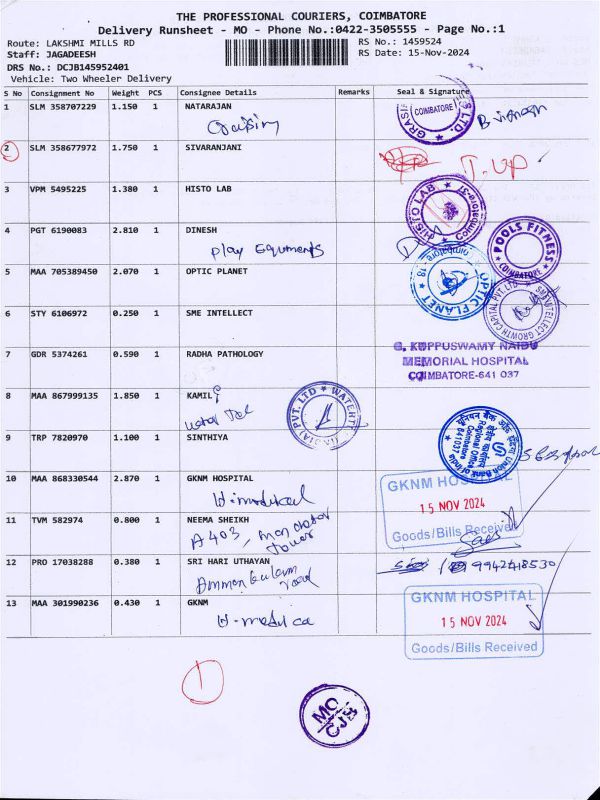 THE PROFESSIONAL COURIERS, COIMBATORE
Delivery Runsheet - MO - Phone No.:0422-3505555 - Page No.:1
Route: LAKSHMI MILLS RD
RS No.: 1459524
Staff: JAGADEESH
RS Date: 15-Nov-2024
DRS No.: DCJB145952401
Vehicle: Two Wheeler Delivery
S No Consignment No Weight PCS Consignee Details Remarks Seal & Signature
1 SLM 358707229 1.150 1 NATARAJAN
COIMBATORE
2 SLM 358677972 1.750 1 SIVARANJANI
T.UP
3 VPM 5495225 1.380 1 HISTO LAB
HISTO LAB
4 PGT 6190083 2.810 1 DINESH
Play Equments
POOLS FITNESS
COIMBATORE
5 MAA 705389450 2.070 1 OPTIC PLANET
OPTIC PLANET
6 STY 6106972 0.250 1 SME INTELLECT
7 GDR 5374261 0.590 1 RADHA PATHOLOGY
G. KUPPUSWAMY NAIDU
MEMORIAL HOSPITAL
COIMBATORE-641 037
8 MAA 867999135 1.850 1 KAMIL
9 TRP 7820970 1.100 1 SINTHIYA
Union Bank of India
Regional Office
Coimbatore
641037
10 MAA 868330544 2.870 1 GKNM HOSPITAL
GKNM HOSPITAL
15 NOV 2024
Goods/Bills Received
11 TVM 582974 0.800 1 NEEMA SHEIKH
A 403,
12 PRO 17038288 0.380 1 SRI HARI UTHAYAN
9942418530
road
13 MAA 301990236 0.430 1 GKNM
GKNM HOSPITAL
15 NOV 2024
Goods/Bills Received
1
MO
CJB